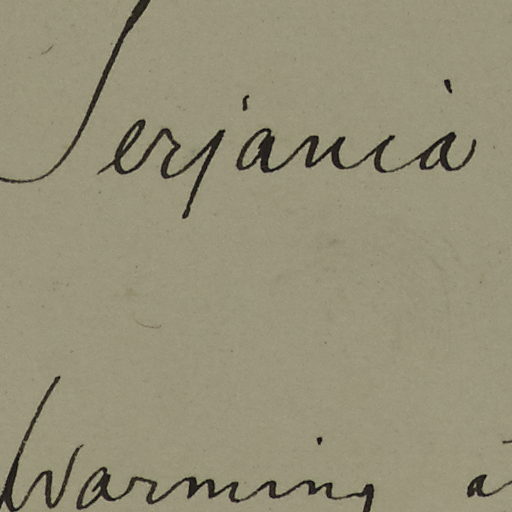 Serjania
Warming